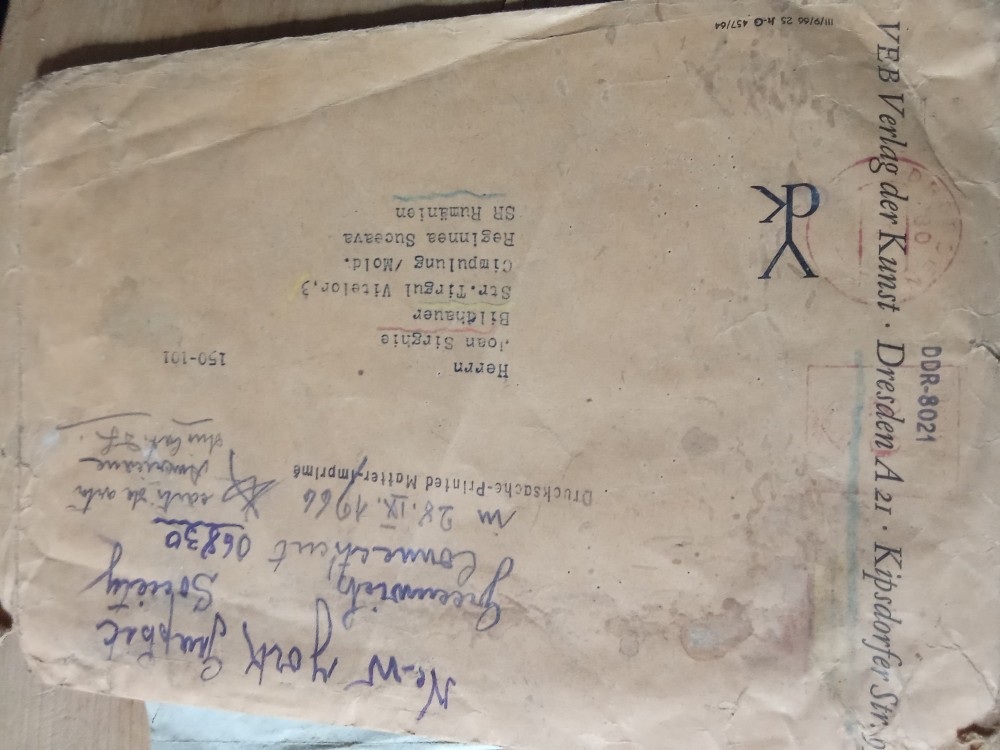 VEB Verlag der Kunst · Dresden A 21 · Kipsdorfer Str.
DDR-8021
III/9/66 25 It-G 457/64
Drucksache-Printed Matter-Imprimé
150-101
Herrn
Joan Sirghie
Bildhauer
Str.Tirgul Vitelor,3
Cimpulung/Mold.
Reginnea Suceava
SR Rumänien
New York Graphic
Society
Greenwich
Connecticut 06830
28.IX.1966
carti de arta
Americane